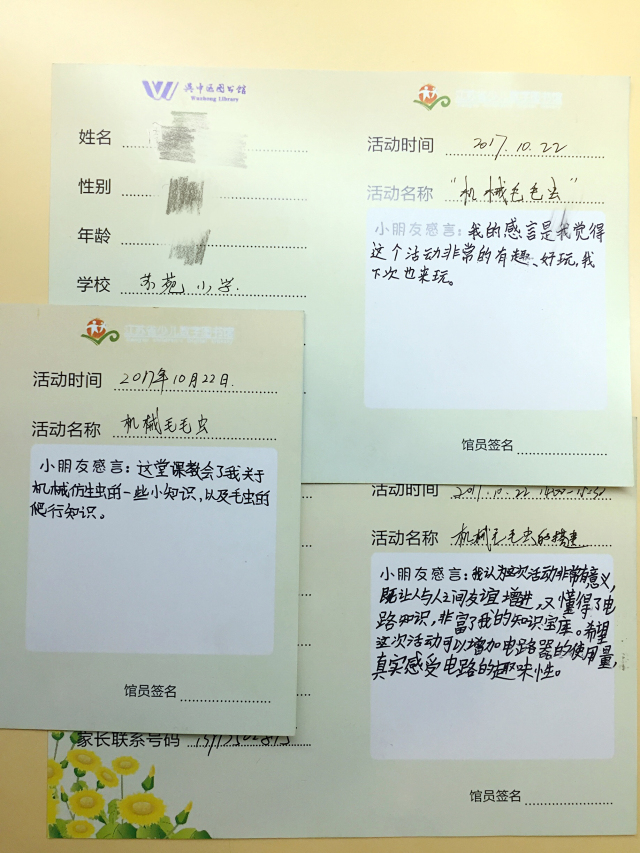 吴中区图书馆
Wuzhong Library
姓名
性别
年龄
学校 苏苑小学
活动时间 2017.10.22
活动名称 “机械毛毛虫”
小朋友感言：我的感言是我觉得
这个活动非常的有趣、好玩，我
下次也来玩。
馆员签名
活动时间 2017年10月22日
活动名称 机械毛毛虫
小朋友感言：这堂课教会了我关于
机械仿生虫的一些小知识，以及毛虫的
爬行知识。
馆员签名
活动时间 2017.10.22
活动名称 机械毛毛虫的搭建
小朋友感言：我认为这次活动非常有意义，
既让人与人之间友谊增进，又懂得了电
路知识，非富了我的知识宝库。希望
这次活动可以增加电路器的使用量，
真实感受电路的趣味性。
馆员签名
家长联系号码